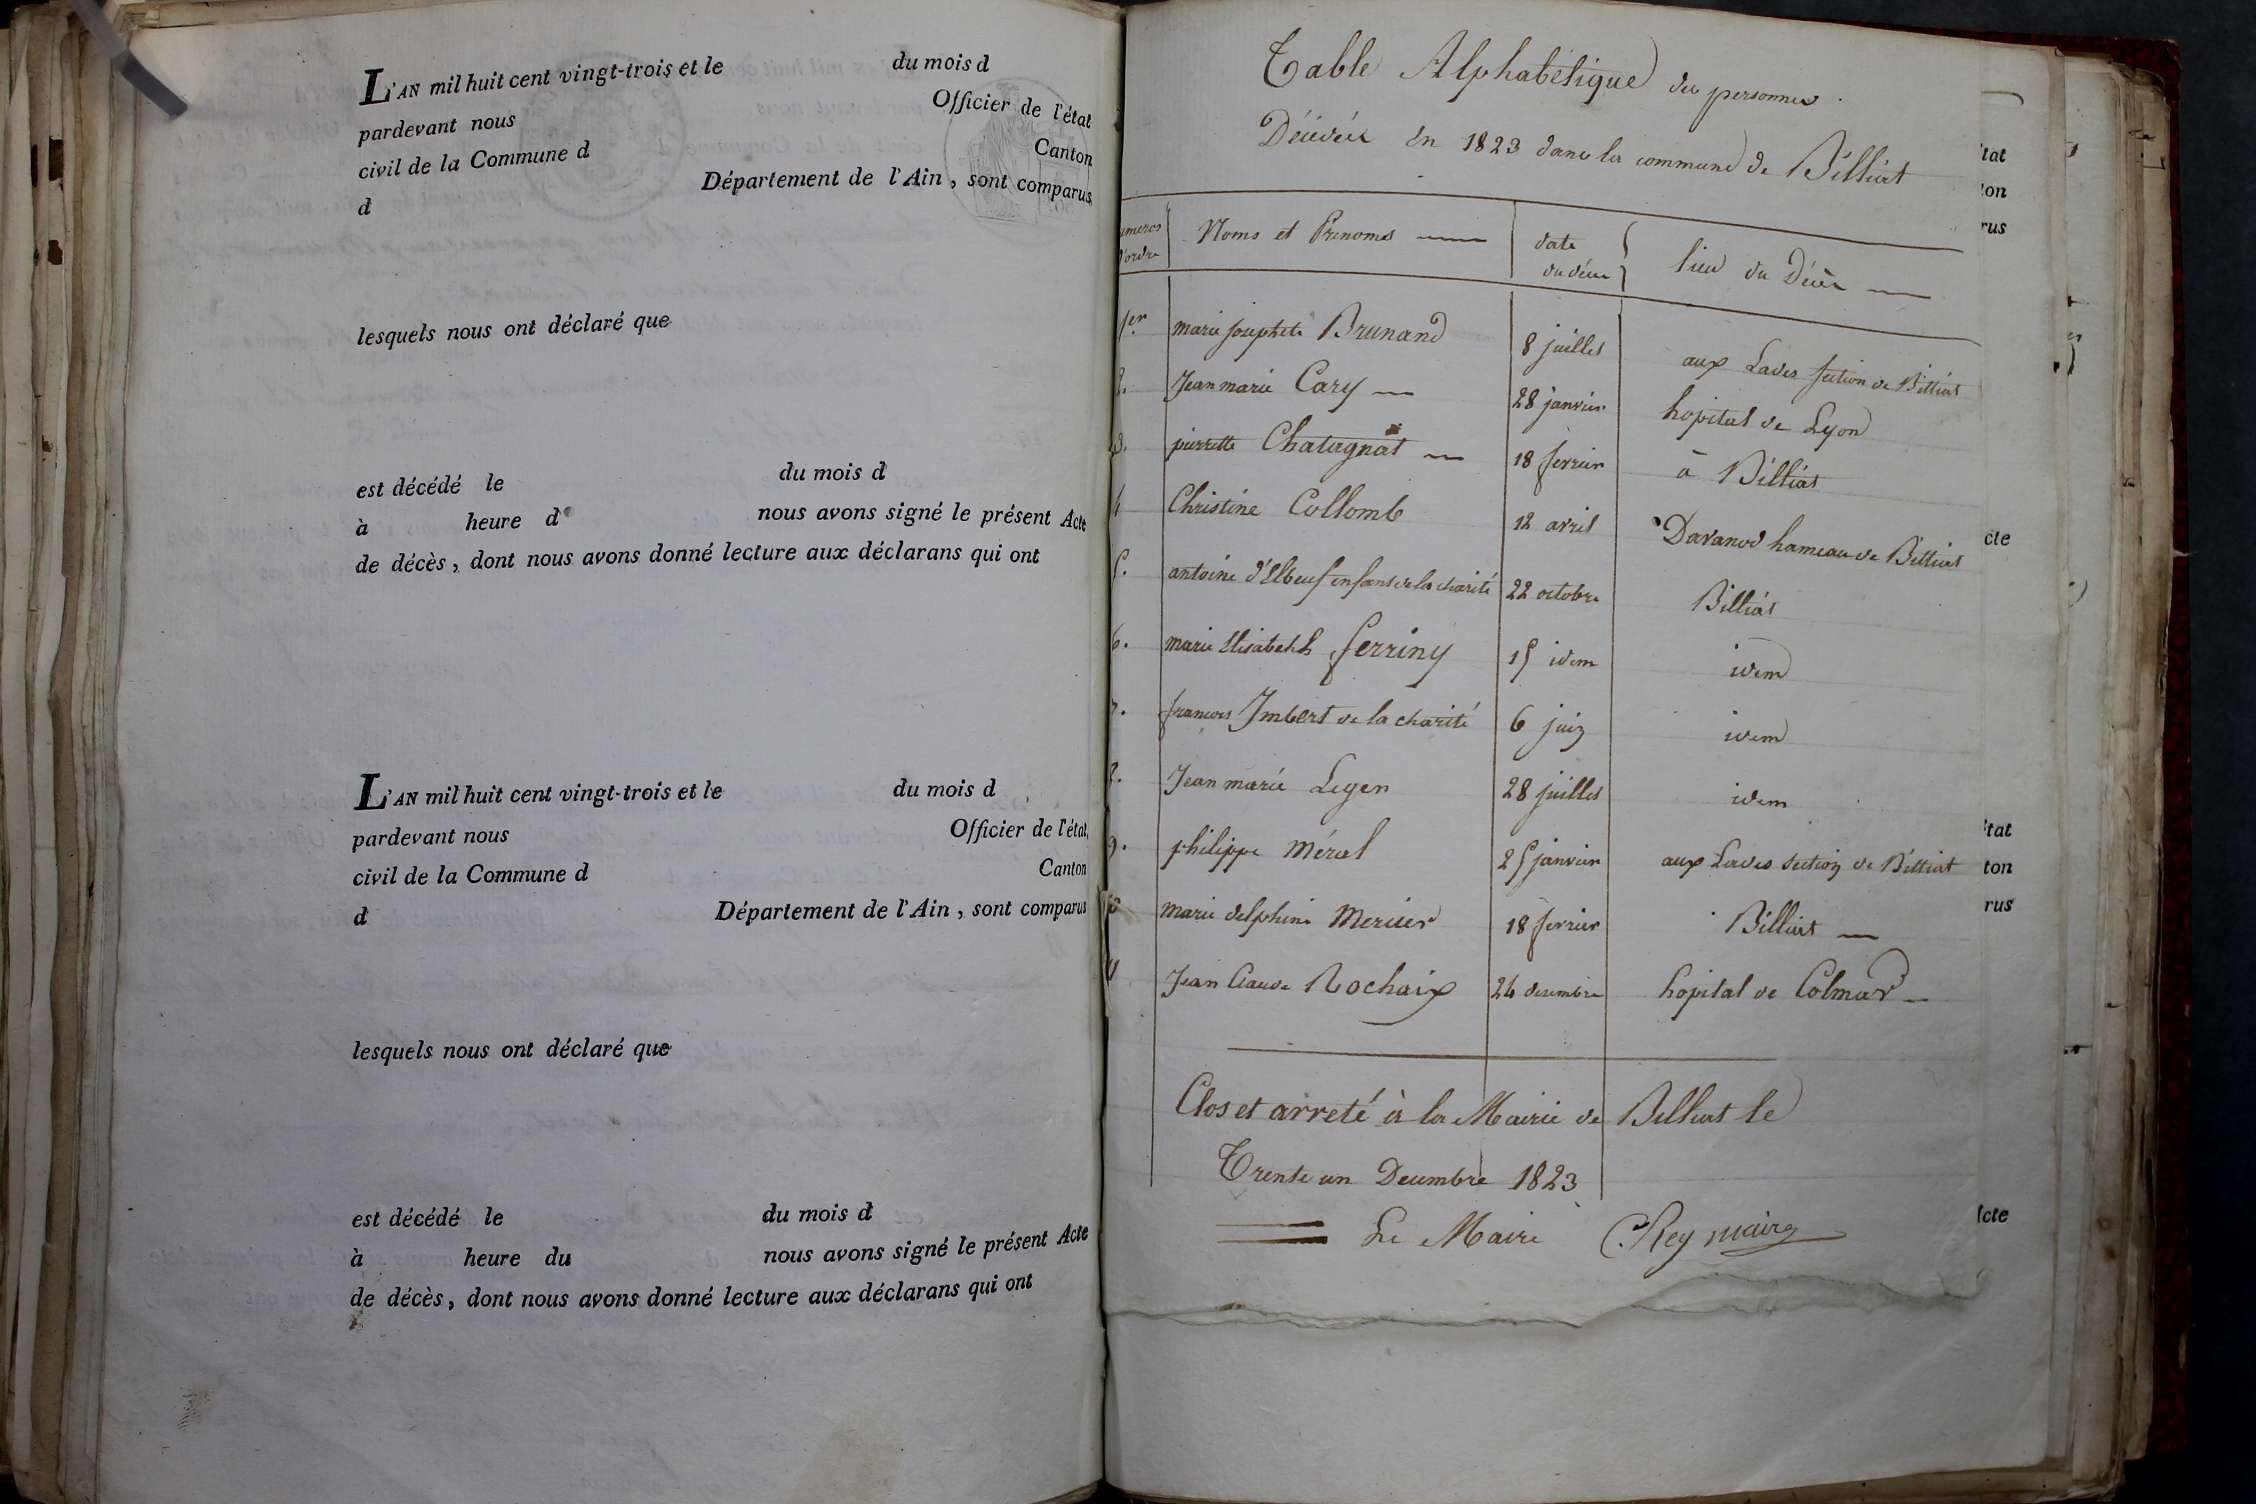 L'AN mil huit cent vingt-trois et le du mois d
pardevant nous Officier de l'état
civil de la Commune d Canton
d Département de l'Ain, sont comparus
lesquels nous ont déclaré que
est décédé le du mois d
à heure d nous avons signé le présent Acte
de décès, dont nous avons donné lecture aux déclarans qui ont
L'AN mil huit cent vingt-trois et le du mois d
pardevant nous Officier de l'état
civil de la Commune d Canton
d Département de l'Ain, sont comparus
lesquels nous ont déclaré que
est décédé le du mois d
à heure du nous avons signé le présent Acte
de décès, dont nous avons donné lecture aux déclarans qui ont
Table Alphabétique des personnes
Décédées en 1823 dans la commune de Billiat
umeros d'ordre Noms et Prenoms date du décès lieu du Décès
1er marie josephete Brunand 8 juillet aux Lades section de Billiat
2. Jean marie Cary 28 janvier hopital de Lyon
3. pierrette Chatagnat 18 fevrier à Billiat
4 Christine Collomb 12 avril Davanod hameau de Billiat
5. antoine d'Elbeuf enfant de la charité 22 octobre Billiat
6. marie Elisabeth ferriny 15 idem idem
7. francois Imbert de la charité 6 juin idem
8. Jean marie Leger 28 juillet idem
9. philippe Méral 25 janvier aux Lades section de Billiat
10 marie delphine Mercier 18 fevrier Billiat
11 Jean Claude Rochaix 24 decembre hopital de Colmar
Clos et arreté à la Mairie de Billiat le
Trente un Decembre 1823
Le Maire CRey maire
tat
ton
rus
cte
tat
ton
rus
Acte